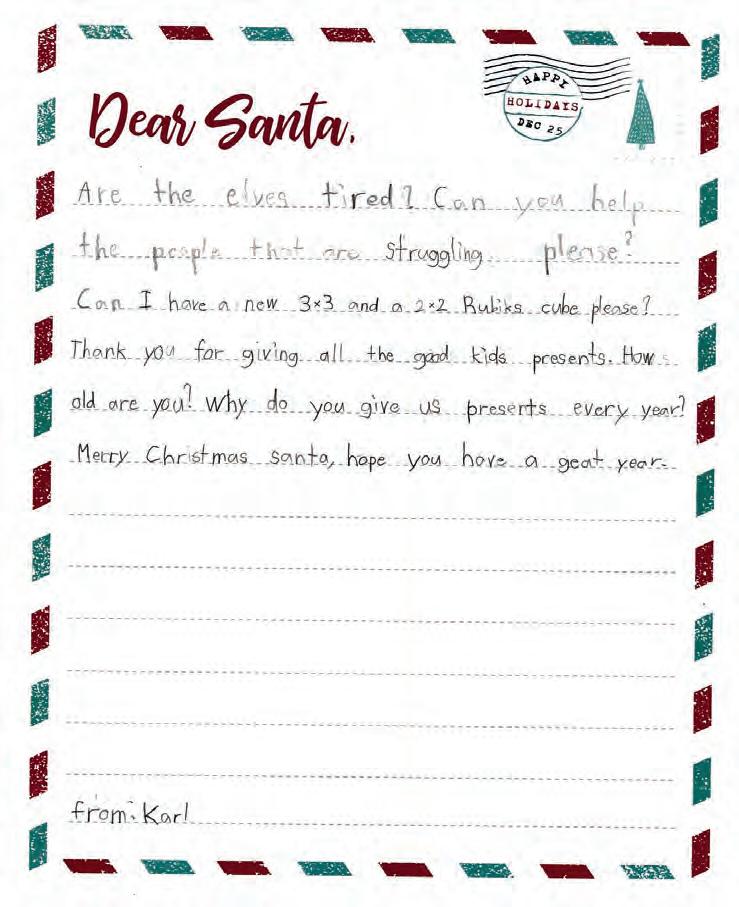 HAPPY
HOLIDAYS
DEC 25
Dear Santa,
Are the elves tired? Can you help
the people that are struggling please?
Can I have a new 3×3 and a 2×2 Rubiks cube please?
Thank you for giving all the good kids presents. How
old are you? Why do you give us presents every year?
Merry Christmas santa, hope you have a geat year.
from: Karl